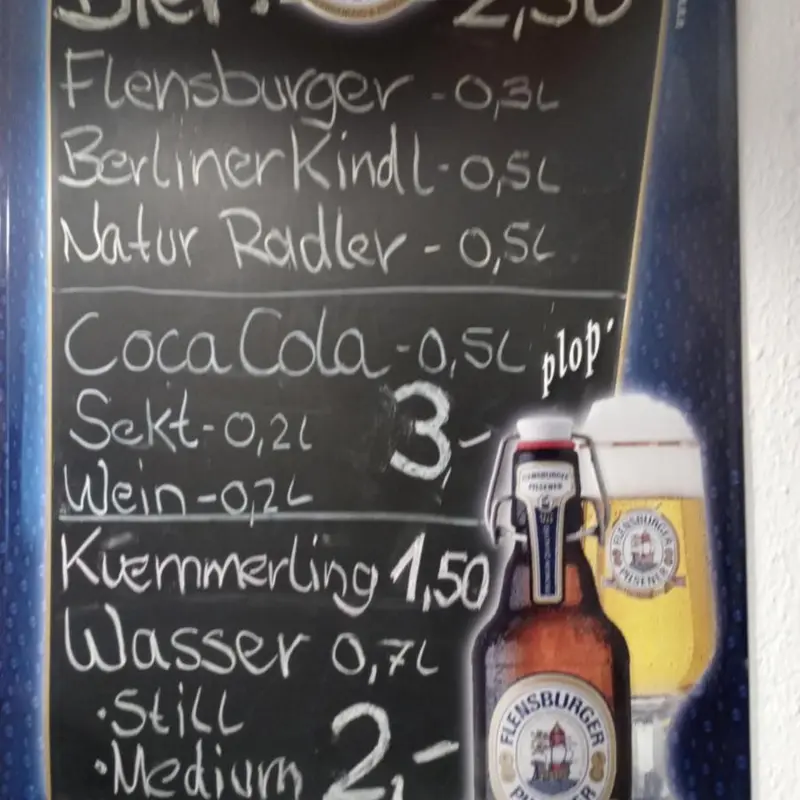 Bier: 2,50
Flensburger - 0,3L
Berliner Kindl - 0,5L
Natur Radler - 0,5L
Coca Cola - 0,5L
plop.
Sekt - 0,2L
3,-
Wein - 0,2L
Kuemmerling 1,50
Wasser 0,7L
· Still
· Medium
2,-
FLENSBURGER
PILSENER
FLENSBURGER
PILSENER
FLENSBURGER
PILSENER